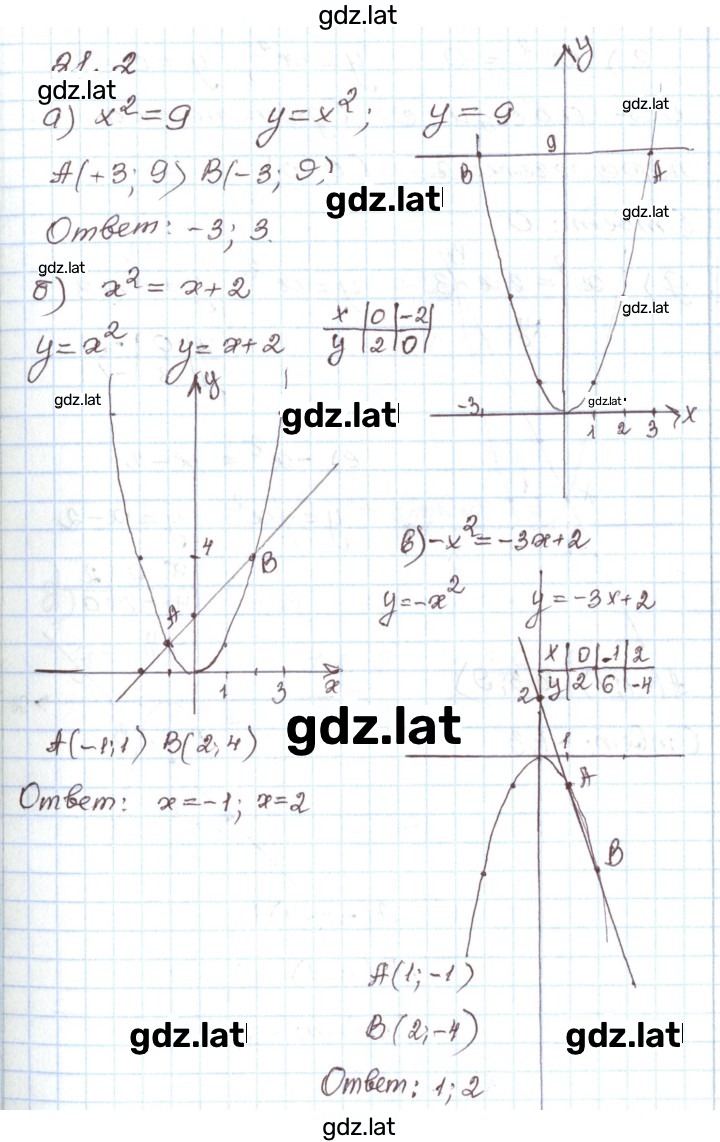 gdz.lat
21.2
gdz.lat
а) x²=9 y=x²; y=9
A(+3; 9) B(-3; 9)
gdz.lat
Ответ: -3; 3.
y
gdz.lat
9
B A
gdz.lat
gdz.lat
gdz.lat
-3 1 2 3 x
gdz.lat
б) x² = x+2
y=x² y= x+2
x | 0 | -2
y | 2 | 0
gdz.lat
y
gdz.lat
4
B
A
1 3 x
A(-1;1) B(2;4)
Ответ: x=-1; x=2
gdz.lat
в) -x²=-3x+2
y=-x² y=-3x+2
x | 0 | -1 | 2
y | 2 | 6 | -4
2
1
A
B
A(1;-1)
B(2;-4)
Ответ: 1; 2
gdz.lat
gdz.lat
gdz.lat